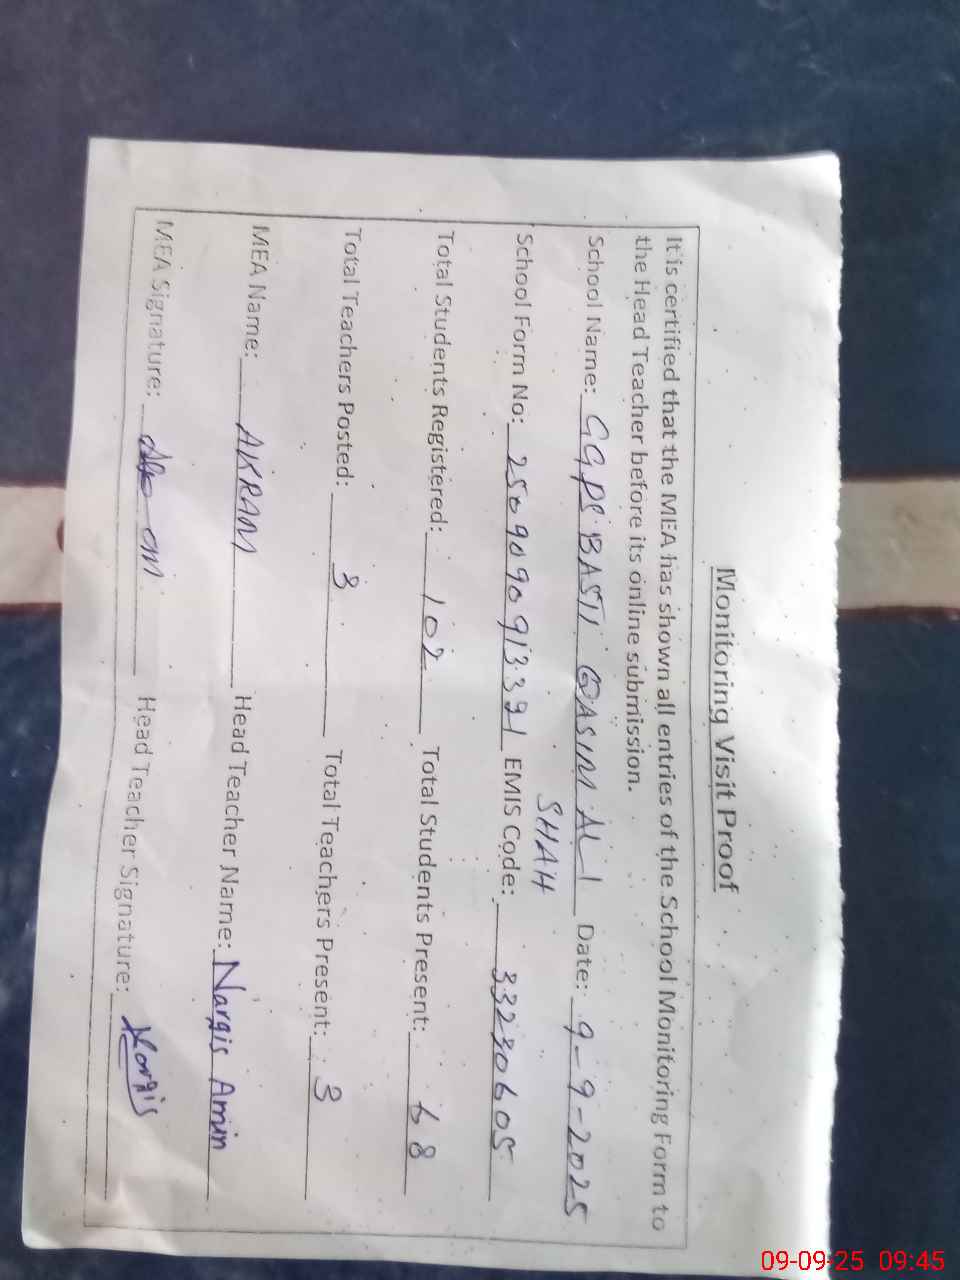 Monitoring Visit Proof
It is certified that the MEA has shown all entries of the School Monitoring Form to
the Head Teacher before its online submission.
School Name: GGPS BASTI QASIM ALI Date: 9-9-2025
SHAH
School Form No: 2509090913391 EMIS Code: 33230605
Total Students Registered: 102 Total Students Present: 68
Total Teachers Posted: 3 Total Teachers Present: 3
MEA Name: AKRAM Head Teacher Name: Nargis Amin
MEA Signature: Head Teacher Signature: Nargis
09-09-25 09:45